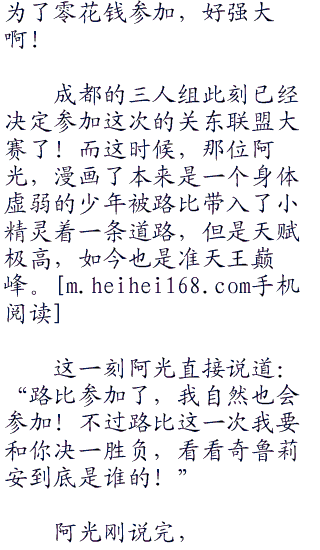 为了零花钱参加，好强大
啊！
成都的三人组此刻已经
决定参加这次的关东联盟大
赛了！而这时候，那位阿
光，漫画了本来是一个身体
虚弱的少年被路比带入了小
精灵着一条道路，但是天赋
极高，如今也是准天王巅
峰。[m.heihei168.com手机
阅读]
这一刻阿光直接说道：
“路比参加了，我自然也会
参加！不过路比这一次我要
和你决一胜负，看看奇鲁莉
安到底是谁的！”
阿光刚说完，